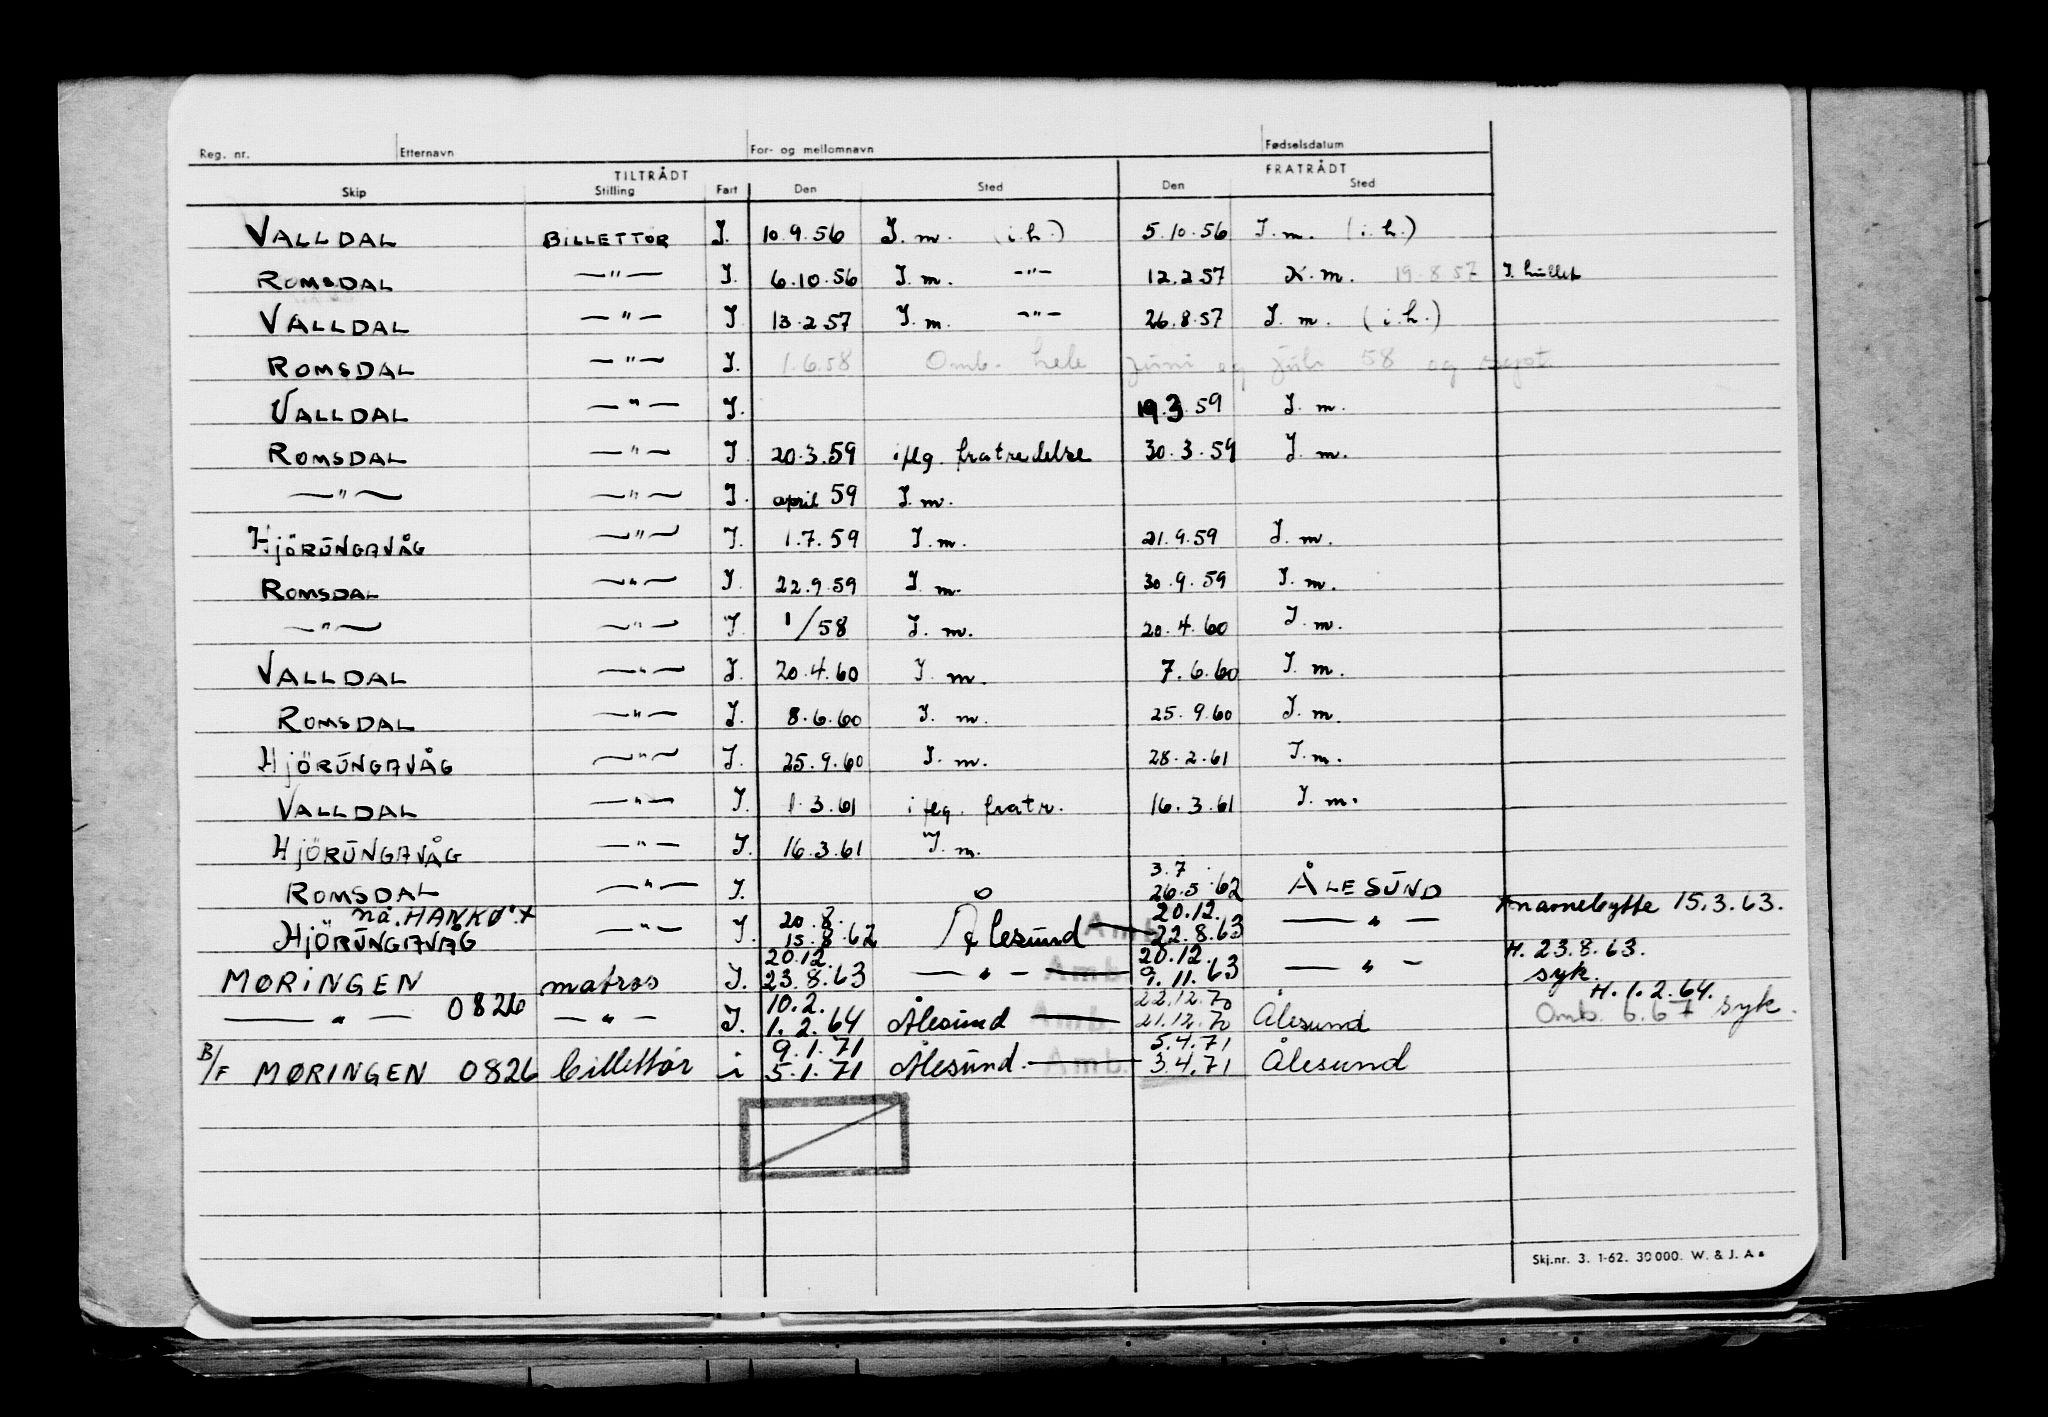 Reg. nr. Etternavn For- og mellomnavn Fødselsdatum
TILTRÅDT FRATRÅDT
Skip Stilling Fart Den Sted Den Sted
VALLDAL BILLETTØR I. 10.9.56 I. m. (i.h.) 5.10.56 I. m. (i.h.)
ROMSDAL —"— I. 6.10.56 I. m. -"- 12.2.57 K. m. 19.8.57
VALLDAL —"— I 13.2.57 I. m. -"- 26.8.57 I. m. (i.h.)
ROMSDAL —"— I. 1.6.58 Omb. hele juni og juli 58 og sept.
VALLDAL —"— I. 19.3.59 I. m.
ROMSDAL —"— I 20.3.59 iflg. fratredelse 30.3.59 I. m.
—"— —"— I. april 59 I. m.
HJÖRUNGAVÅG —"— I. 1.7.59 I. m. 21.9.59 I. m.
ROMSDAL —"— I. 22.9.59 I. m. 30.9.59 I. m.
—"— —"— I. 1/58 I. m. 20.4.60 I. m.
VALLDAL —"— I. 20.4.60 I. m. 7.6.60 I. m.
ROMSDAL —"— I. 8.6.60 I. m. 25.9.60 I. m.
HJÖRUNGAVÅG —"— I. 25.9.60 I. m. 28.2.61 I. m.
VALLDAL —"— I. 1.3.61 iflg. fratr. 16.3.61 I. m.
HJÖRUNGAVÅG —"— I. 16.3.61 I. m.
3.7
ROMSDAL —"— I. 26.5.62 ÅLESUND
nå HANKØ x 20.8. 20.12. x navnebytte 15.3.63.
HJÖRUNGAVAG —"— I. 15.8.62 Ålesund Amb. 22.8.63 —"—
20.12. 20.12. H. 23.8.63.
MØRINGEN matros I. 23.8.63 —"— Amb. 9.11.63 —"— syk.
10.2. 22.12.70 H. 1.2.64.
—"— 0826 —"— I. 1.2.64 Ålesund Amb. 21.12.70 Ålesund Omb. 6.67 syk.
9.1.71 5.4.71
B/F MØRINGEN 0826 billettør i 5.1.71 Ålesund. Amb. 3.4.71 Ålesund
Skj.nr. 3. 1-62. 30 000. W. & J. A